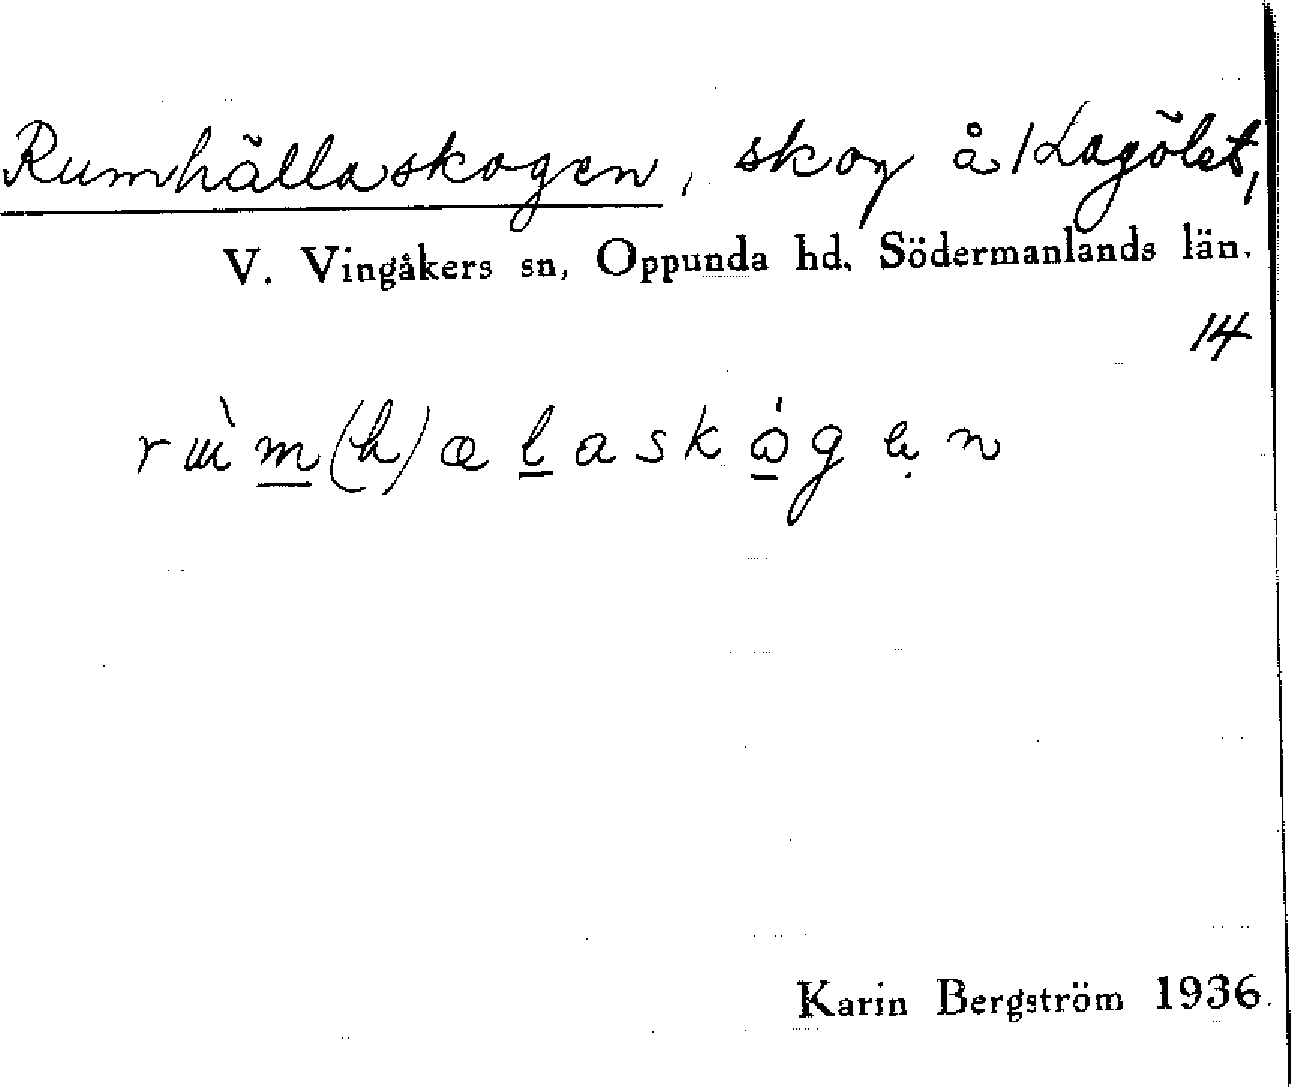 Rumhällaskogen, skog å Lagölet,
V. Vingåkers sn, Oppunda hd. Södermanlands län.
14
Karin Bergström 1936